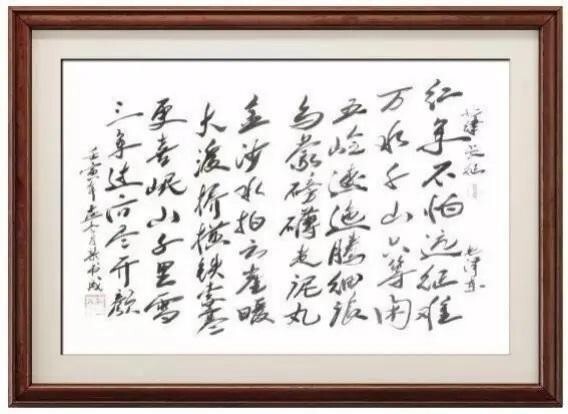 七律 长征
毛泽东
红军不怕远征难
万水千山只等闲
五岭逶迤腾细浪
乌蒙磅礴走泥丸
金沙水拍云崖暖
大渡桥横铁索寒
更喜岷山千里雪
三军过后尽开颜
壬寅年